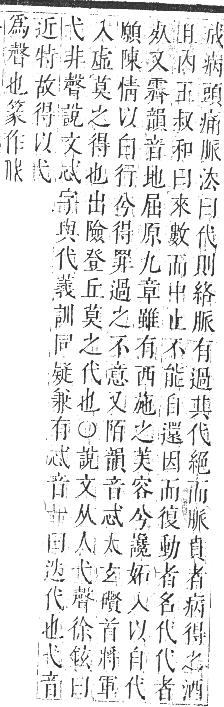 成病頭痛脈法曰代則絡脈有過其代絕而脈賁者病得之酒
且內王叔和曰來數而中止不能自還因而復動者名代代者
死又霽韻音地屈原九章雖有西施之美容兮讒妒入以自代
願陳情以白行兮得罪過之不意又陌韻音忒太玄礥首將軍
入虛莫之得也出險登丘莫之代也○說文从人弋聲徐鉉曰
弋非聲說文忒字與代義訓同疑兼有忒音曰迭代也弋音
近特故得以弋
為聲也篆作